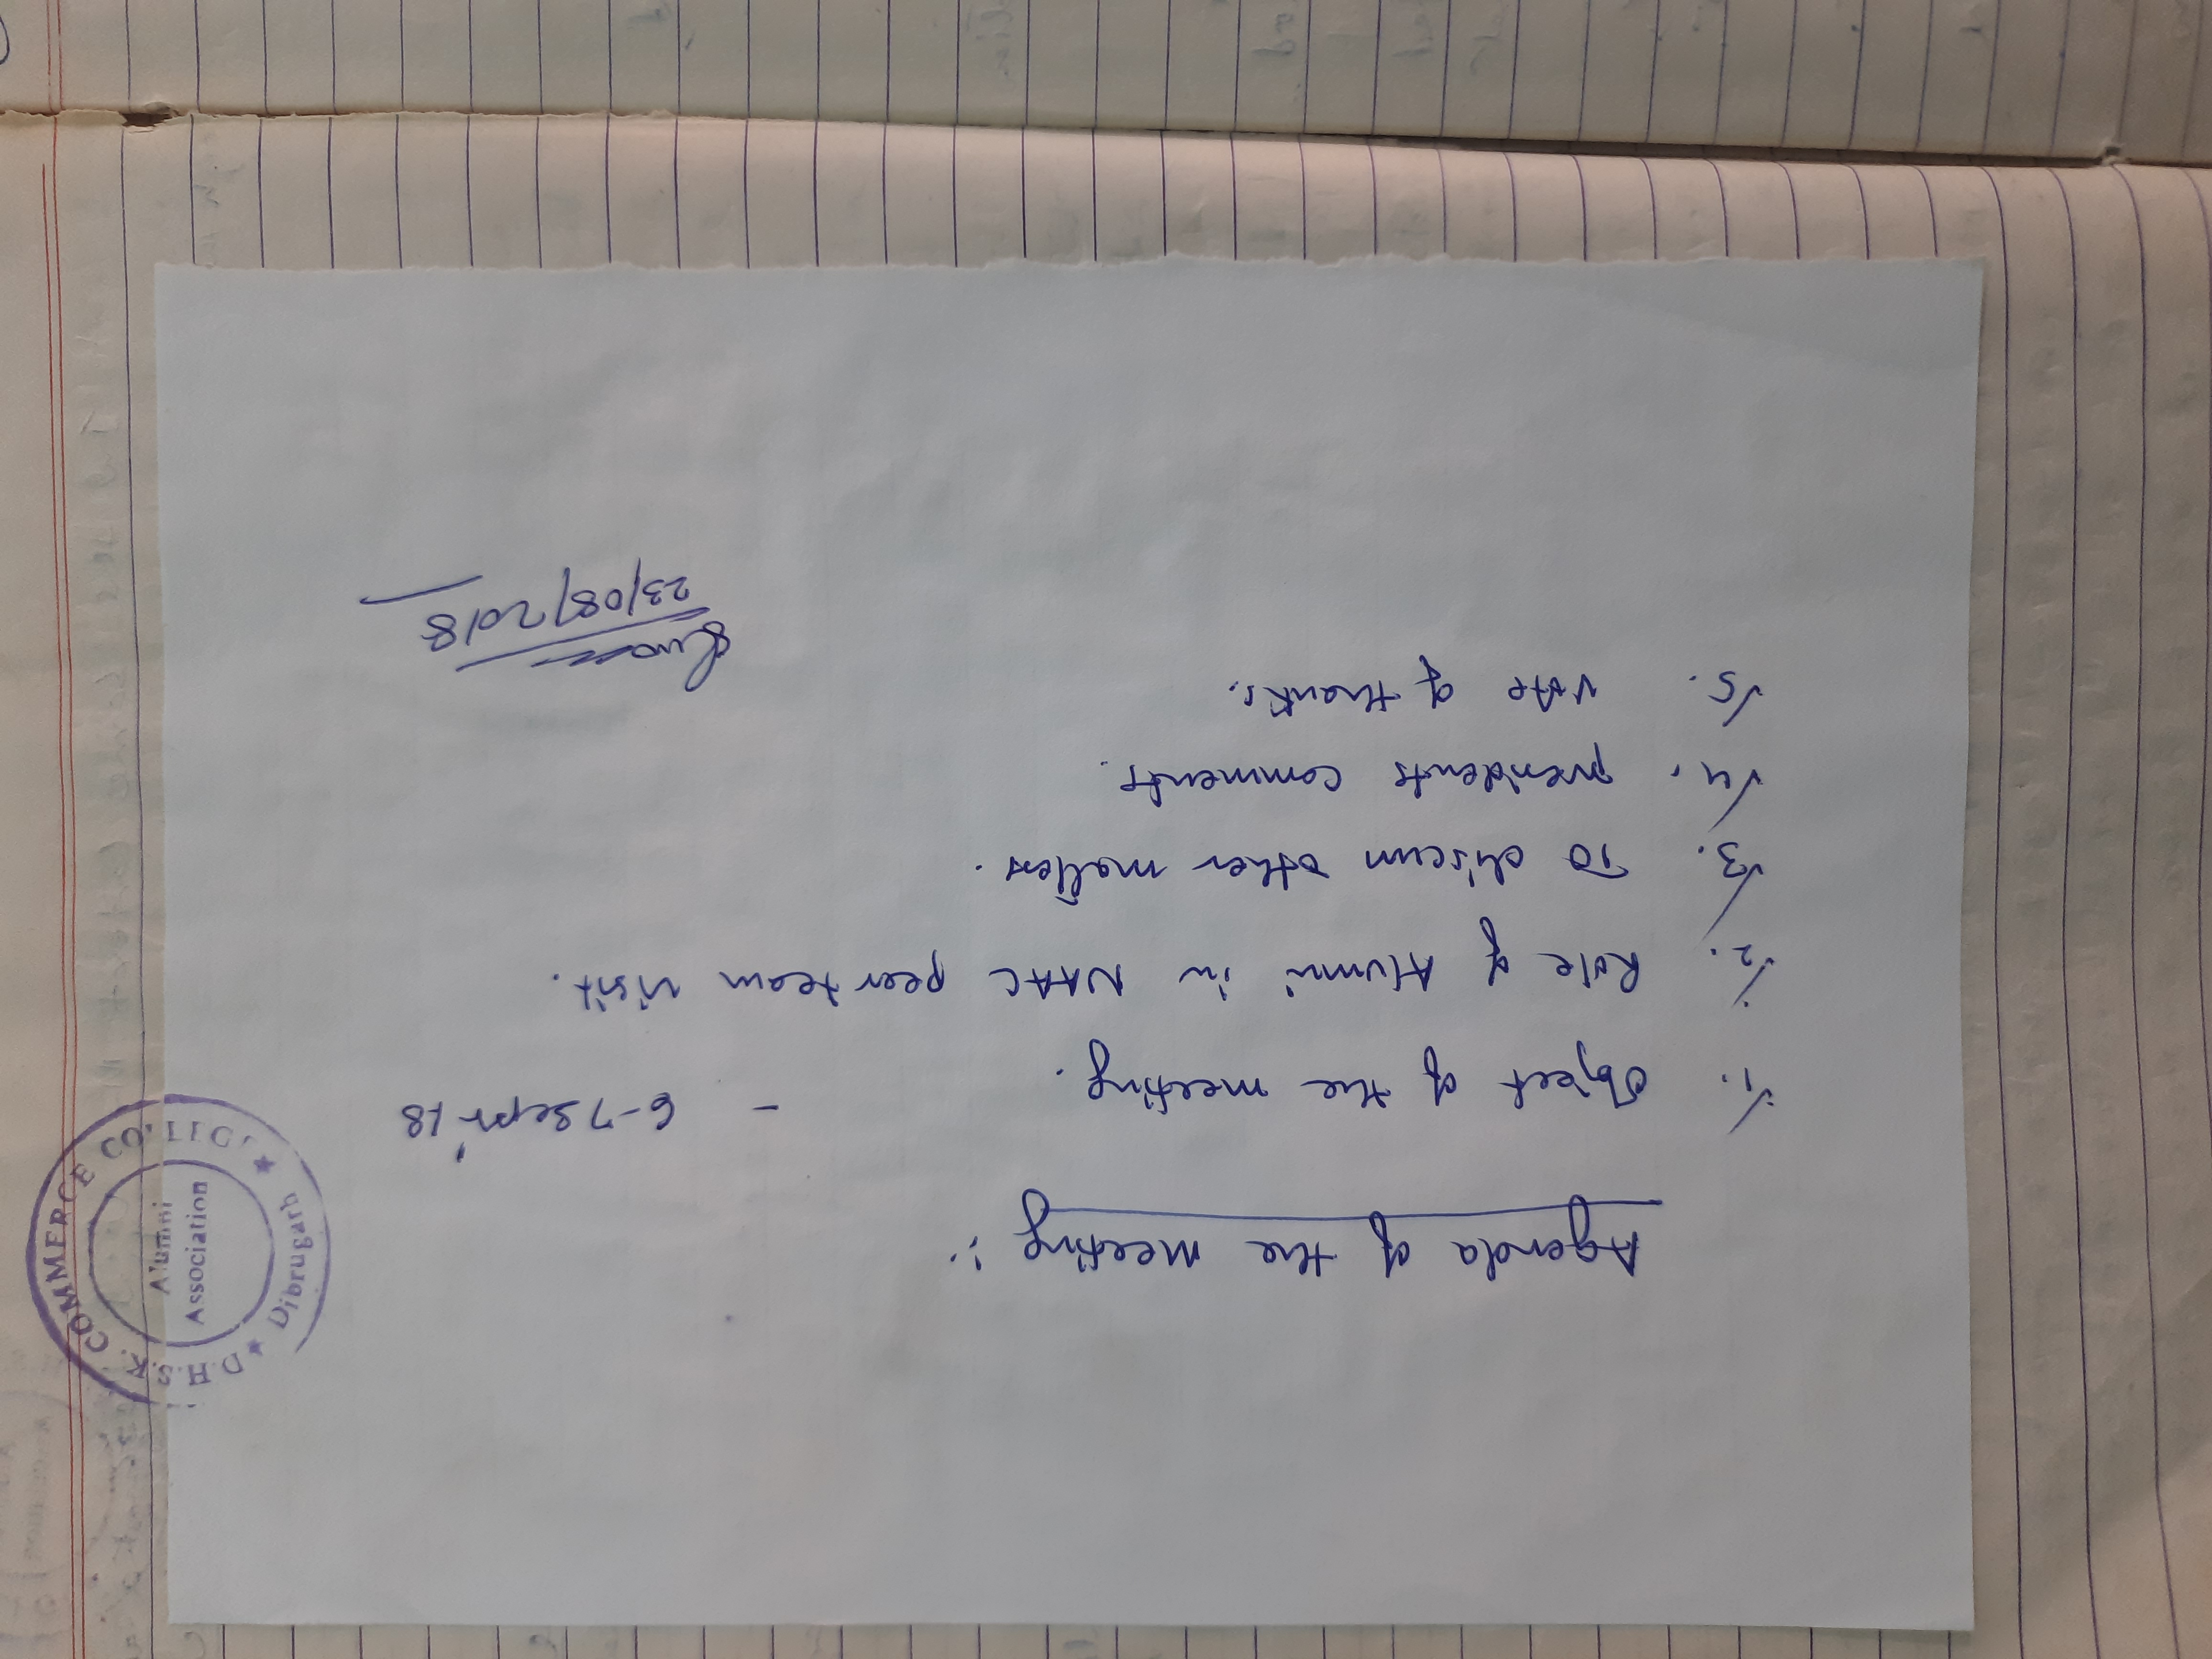 Agenda of the meeting :-
1. Object of the meeting. - 6-7 Sept '18
2. Role of Alumni in NAAC peer team visit.
3. To discuss other matters.
4. presidents comments.
5. Vote of thanks.
23/08/2018
D.H.S.K. COMMERCE COLLEGE
Alumni
Association
Dibrugarh